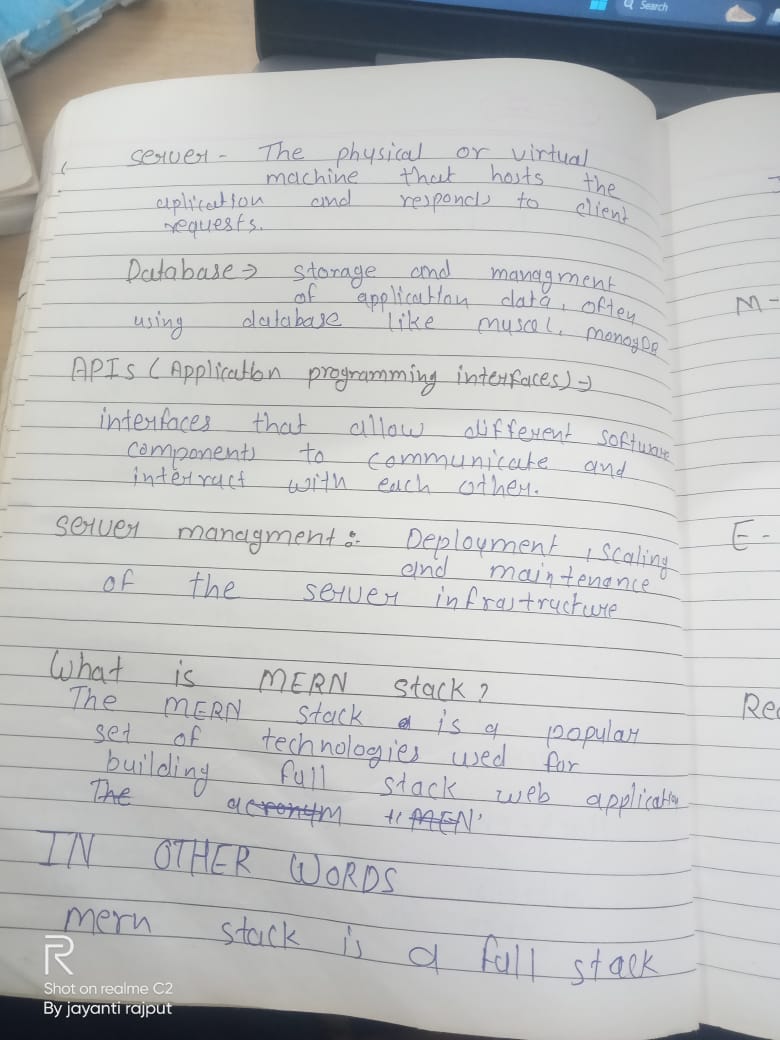 Search
server - The physical or virtual
machine that hosts the
aplication and responds to client
requests.
Database → storage and managment
of application data, often
using database like muscol, monogoDB
APIs (Application programming interfaces) →
interfaces that allow different software
components to communicate and
interract with each other.
server managment :- Deployment, scaling
and maintenance
of the server infrastructure
What is MERN stack?
The MERN stack is a popular
set of technologies used for
building full stack web application
The acronym "MEN'
IN OTHER WORDS
mern stack is a full stack
M -
E -
Rea
R
Shot on realme C2
By jayanti rajput